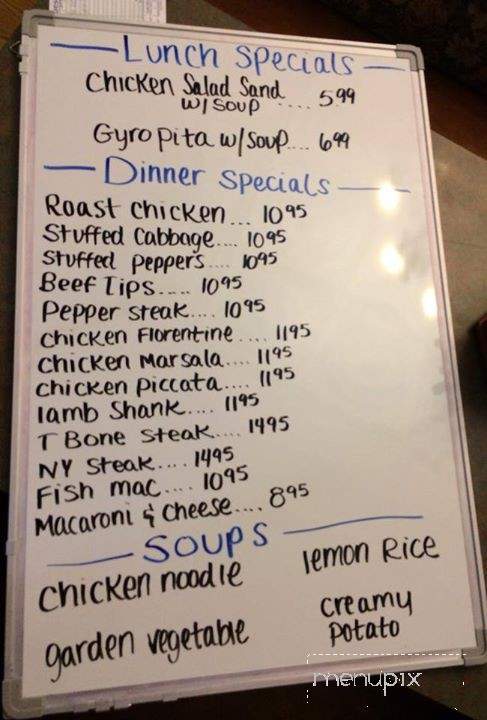 Lunch Specials
Chicken Salad Sand
w/soup .... 5.99
Gyro pita w/soup.... 6.99
Dinner Specials
Roast Chicken... 10 95
Stuffed Cabbage.... 10 95
Stuffed Peppers.... 10 95
Beef Tips..... 10 95
Pepper steak.... 10 95
chicken Florentine .... 11 95
chicken Marsala.... 11 95
chicken piccata.... 11 95
lamb Shank.... 11 95
T Bone steak.... 14 95
NY steak.... 14 95
Fish mac.... 10 95
Macaroni & cheese.... 8 95
Soups
chicken noodle
lemon Rice
garden vegetable
creamy
potato
menupix